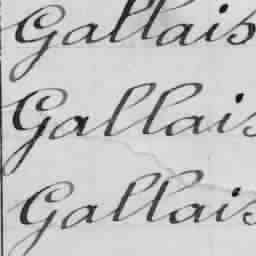 Gallais
Gallais
Gallais